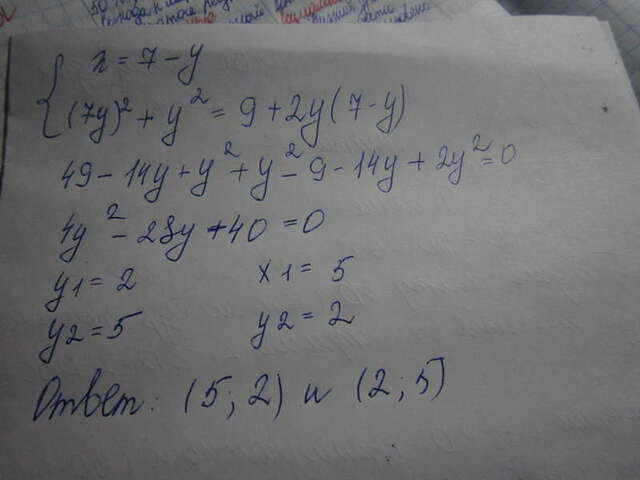 x = 7 - y
(7y)² + y² = 9 + 2y(7-y)
49 - 14y + y² + y² - 9 - 14y + 2y² = 0
4y² - 28y + 40 = 0
y1 = 2 x1 = 5
y2 = 5 y2 = 2
Ответ: (5; 2) и (2; 5)